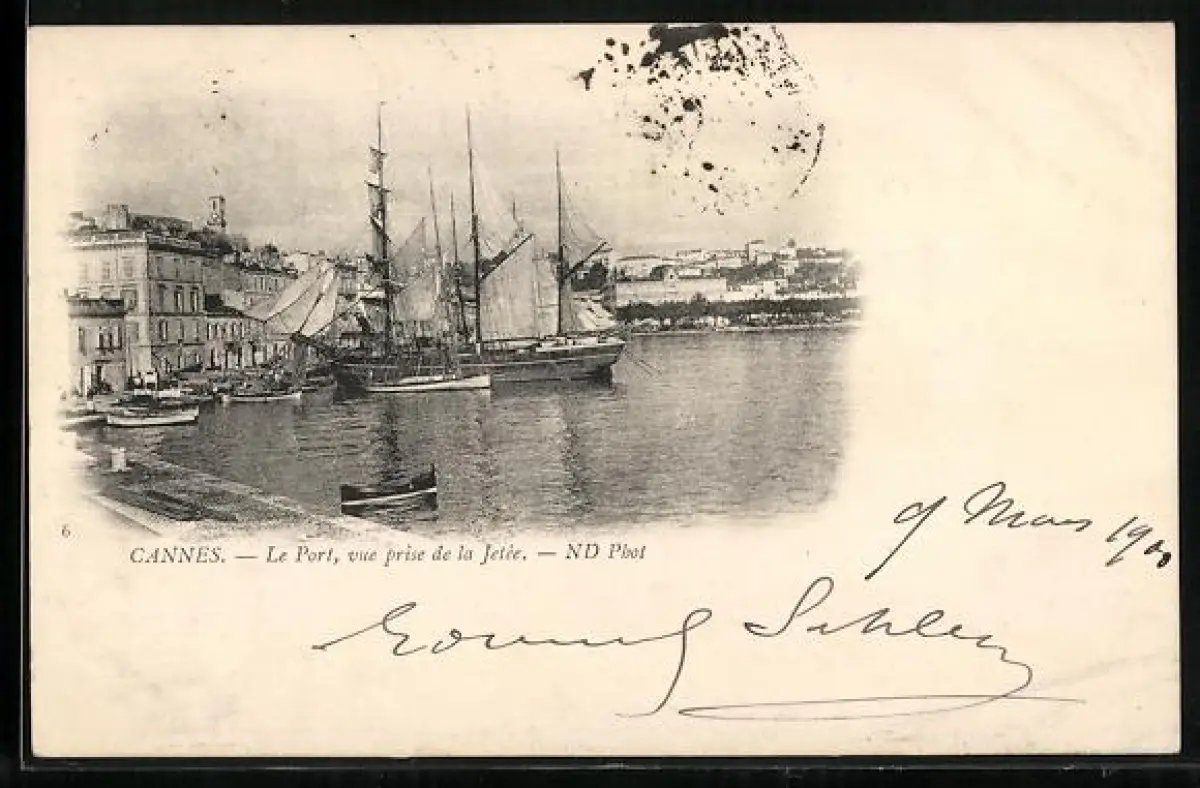 6
CANNES. — Le Port, vue prise de la Jetée. — ND Phot
9 Mars 1900